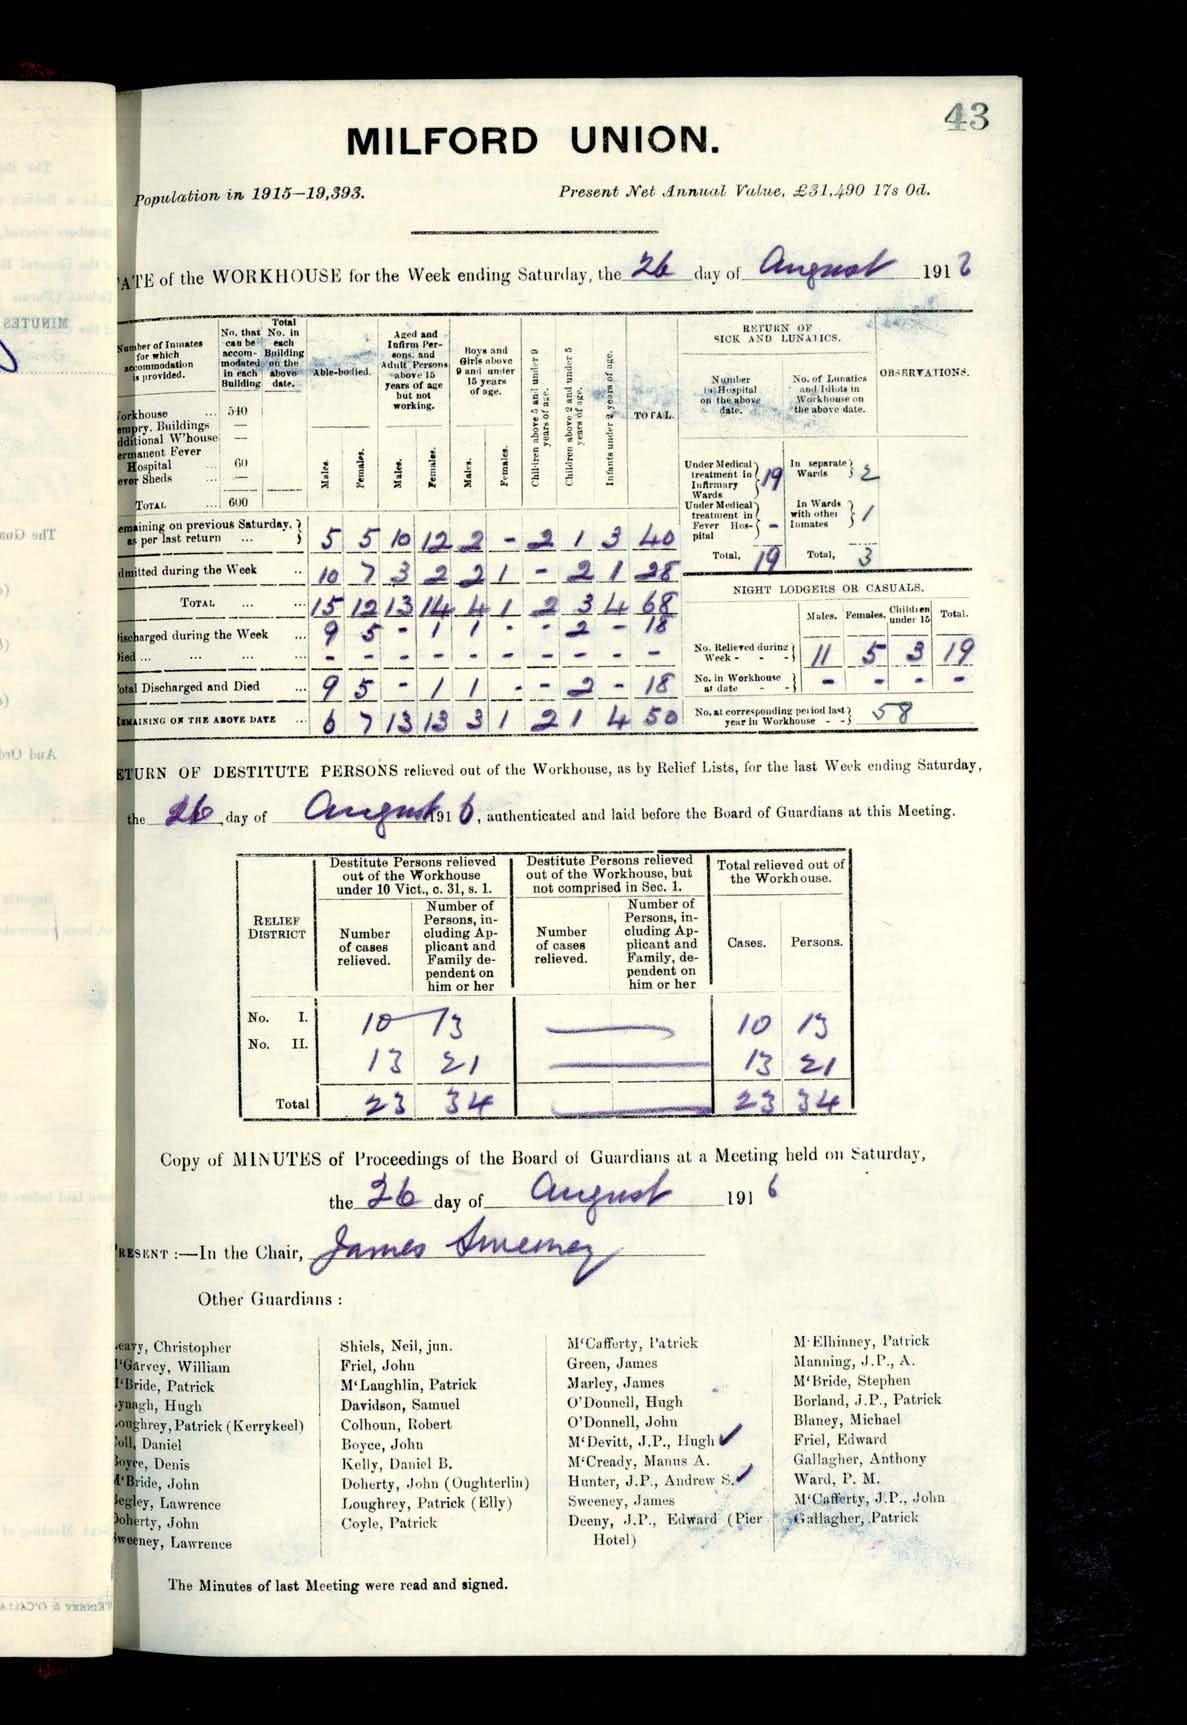 43
MILFORD UNION.
Population in 1915—19,393.
Present Net Annual Value, £31,490 17s 0d.
ATE of the WORKHOUSE for the Week ending Saturday, the 26 day of August 1916
umber of Inmates for which accommodation is provided.
No. that can be accommodated in each Building
Total No. in each Building on the above date.
Able-bodied.
Aged and Infirm Persons, and Adult Persons above 15 years of age but not working.
Boys and Girls above 9 and under 15 years of age.
Children above 5 and under 9 years of age.
Children above 2 and under 5 years of age.
Infants under 2 years of age.
TOTAL.
Males. Females. Males. Females. Males. Females.
orkhouse ... 540
empry. Buildings —
dditional W'house —
ermanent Fever Hospital ... 60
ever Sheds ... —
TOTAL ... 600
RETURN OF SICK AND LUNATICS.
OBSERVATIONS.
Number in Hospital on the above date.
No. of Lunatics and Idiots in Workhouse on the above date.
Under Medical treatment in Infirmary Wards 19
In separate Wards 2
Under Medical treatment in Fever Hospital -
In Wards with other Inmates 1
Total, 19
Total, 3
emaining on previous Saturday, as per last return ... 5 5 10 12 2 - 2 1 3 40
dmitted during the Week .. 10 7 3 2 2 1 - 2 1 28
TOTAL ... ... 15 12 13 14 4 1 2 3 4 68
ischarged during the Week ... 9 5 - 1 1 - - 2 - 18
ied ... ... ... ... - - - - - - - - - -
otal Discharged and Died ... 9 5 - 1 1 - - 2 - 18
EMAINING ON THE ABOVE DATE ... 6 7 13 13 3 1 2 1 4 50
NIGHT LODGERS OR CASUALS.
Males. Females. Children under 15 Total.
No. Relieved during Week - - - 11 5 3 19
No. in Workhouse at date - - - - - -
No. at corresponding period last year in Workhouse - - 58
ETURN OF DESTITUTE PERSONS relieved out of the Workhouse, as by Relief Lists, for the last Week ending Saturday,
the 26 day of August 1916, authenticated and laid before the Board of Guardians at this Meeting.
RELIEF DISTRICT
Destitute Persons relieved out of the Workhouse under 10 Vict., c. 31, s. 1.
Destitute Persons relieved out of the Workhouse, but not comprised in Sec. 1.
Total relieved out of the Workhouse.
Number of cases relieved.
Number of Persons, including Applicant and Family dependent on him or her
Number of cases relieved.
Number of Persons, including Applicant and Family, dependent on him or her
Cases. Persons.
No. I. 10 13 — 10 13
No. II. 13 21 — 13 21
Total 23 34 — 23 34
Copy of MINUTES of Proceedings of the Board of Guardians at a Meeting held on Saturday,
the 26 day of August 1916
RESENT :—In the Chair, James Sweeney
Other Guardians :
eavy, Christopher
M'Garvey, William
M'Bride, Patrick
ynagh, Hugh
oughrey, Patrick (Kerrykeel)
oll, Daniel
Boyce, Denis
M'Bride, John
Begley, Lawrence
Doherty, John
Sweeney, Lawrence
Shiels, Neil, jun.
Friel, John
M'Laughlin, Patrick
Davidson, Samuel
Colhoun, Robert
Boyce, John
Kelly, Daniel B.
Doherty, John (Oughterlin)
Loughrey, Patrick (Elly)
Coyle, Patrick
M'Cafferty, Patrick
Green, James
Marley, James
O'Donnell, Hugh
O'Donnell, John
M'Devitt, J.P., Hugh ✓
M'Cready, Manus A.
Hunter, J.P., Andrew S. ✓
Sweeney, James
Deeny, J.P., Edward (Pier
Hotel)
M'Elhinney, Patrick
Manning, J.P., A.
M'Bride, Stephen
Borland, J.P., Patrick
Blaney, Michael
Friel, Edward
Gallagher, Anthony
Ward, P. M.
M'Cafferty, J.P., John
Gallagher, Patrick
The Minutes of last Meeting were read and signed.